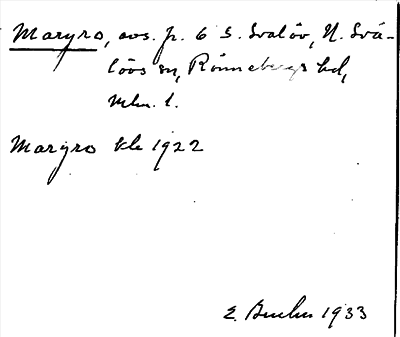 Maryro, avs. p. 6 S. Svalöv, N. Sva-
lövs sn, Rönnebergs hd,
Mlm. l.
Maryro kk 1922
E. 1933